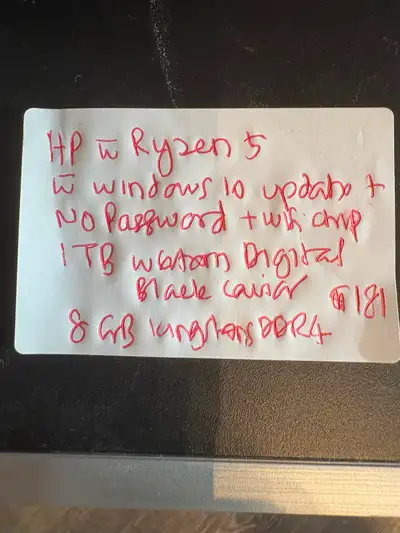 HP w̅ Ryzen 5
w̅ windows 10 update +
No Password + wifi chip
1TB western Digital
Black caviar $181
8 GB kingstons DDR4